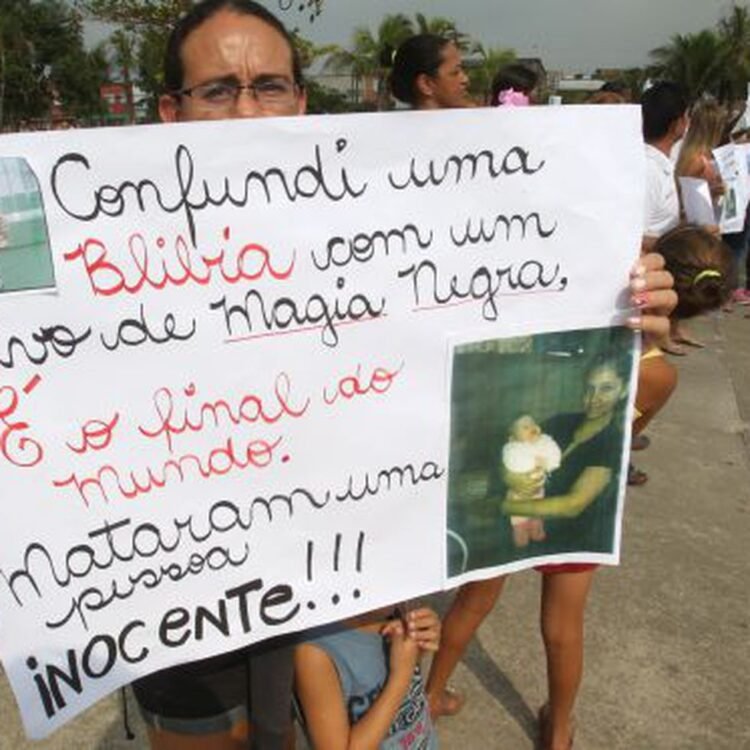 Confundi uma
Blibia com um
vro de Magia Negra,
É o final do
mundo.
Mataram uma
pessoa
iNOCENTE!!!